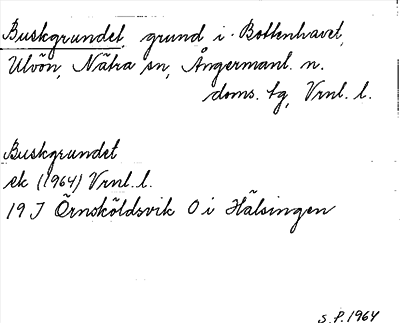 Buskgrundet, grund i Bottenhavet,
Ulvön, Nätra sn, Ångermanl. n.
doms. tg, Vrnl. l.
Buskgrundet
ek (1964) Vrnl. l.
19 J Örnsköldsvik O i Hälsingen
S. P. 1964